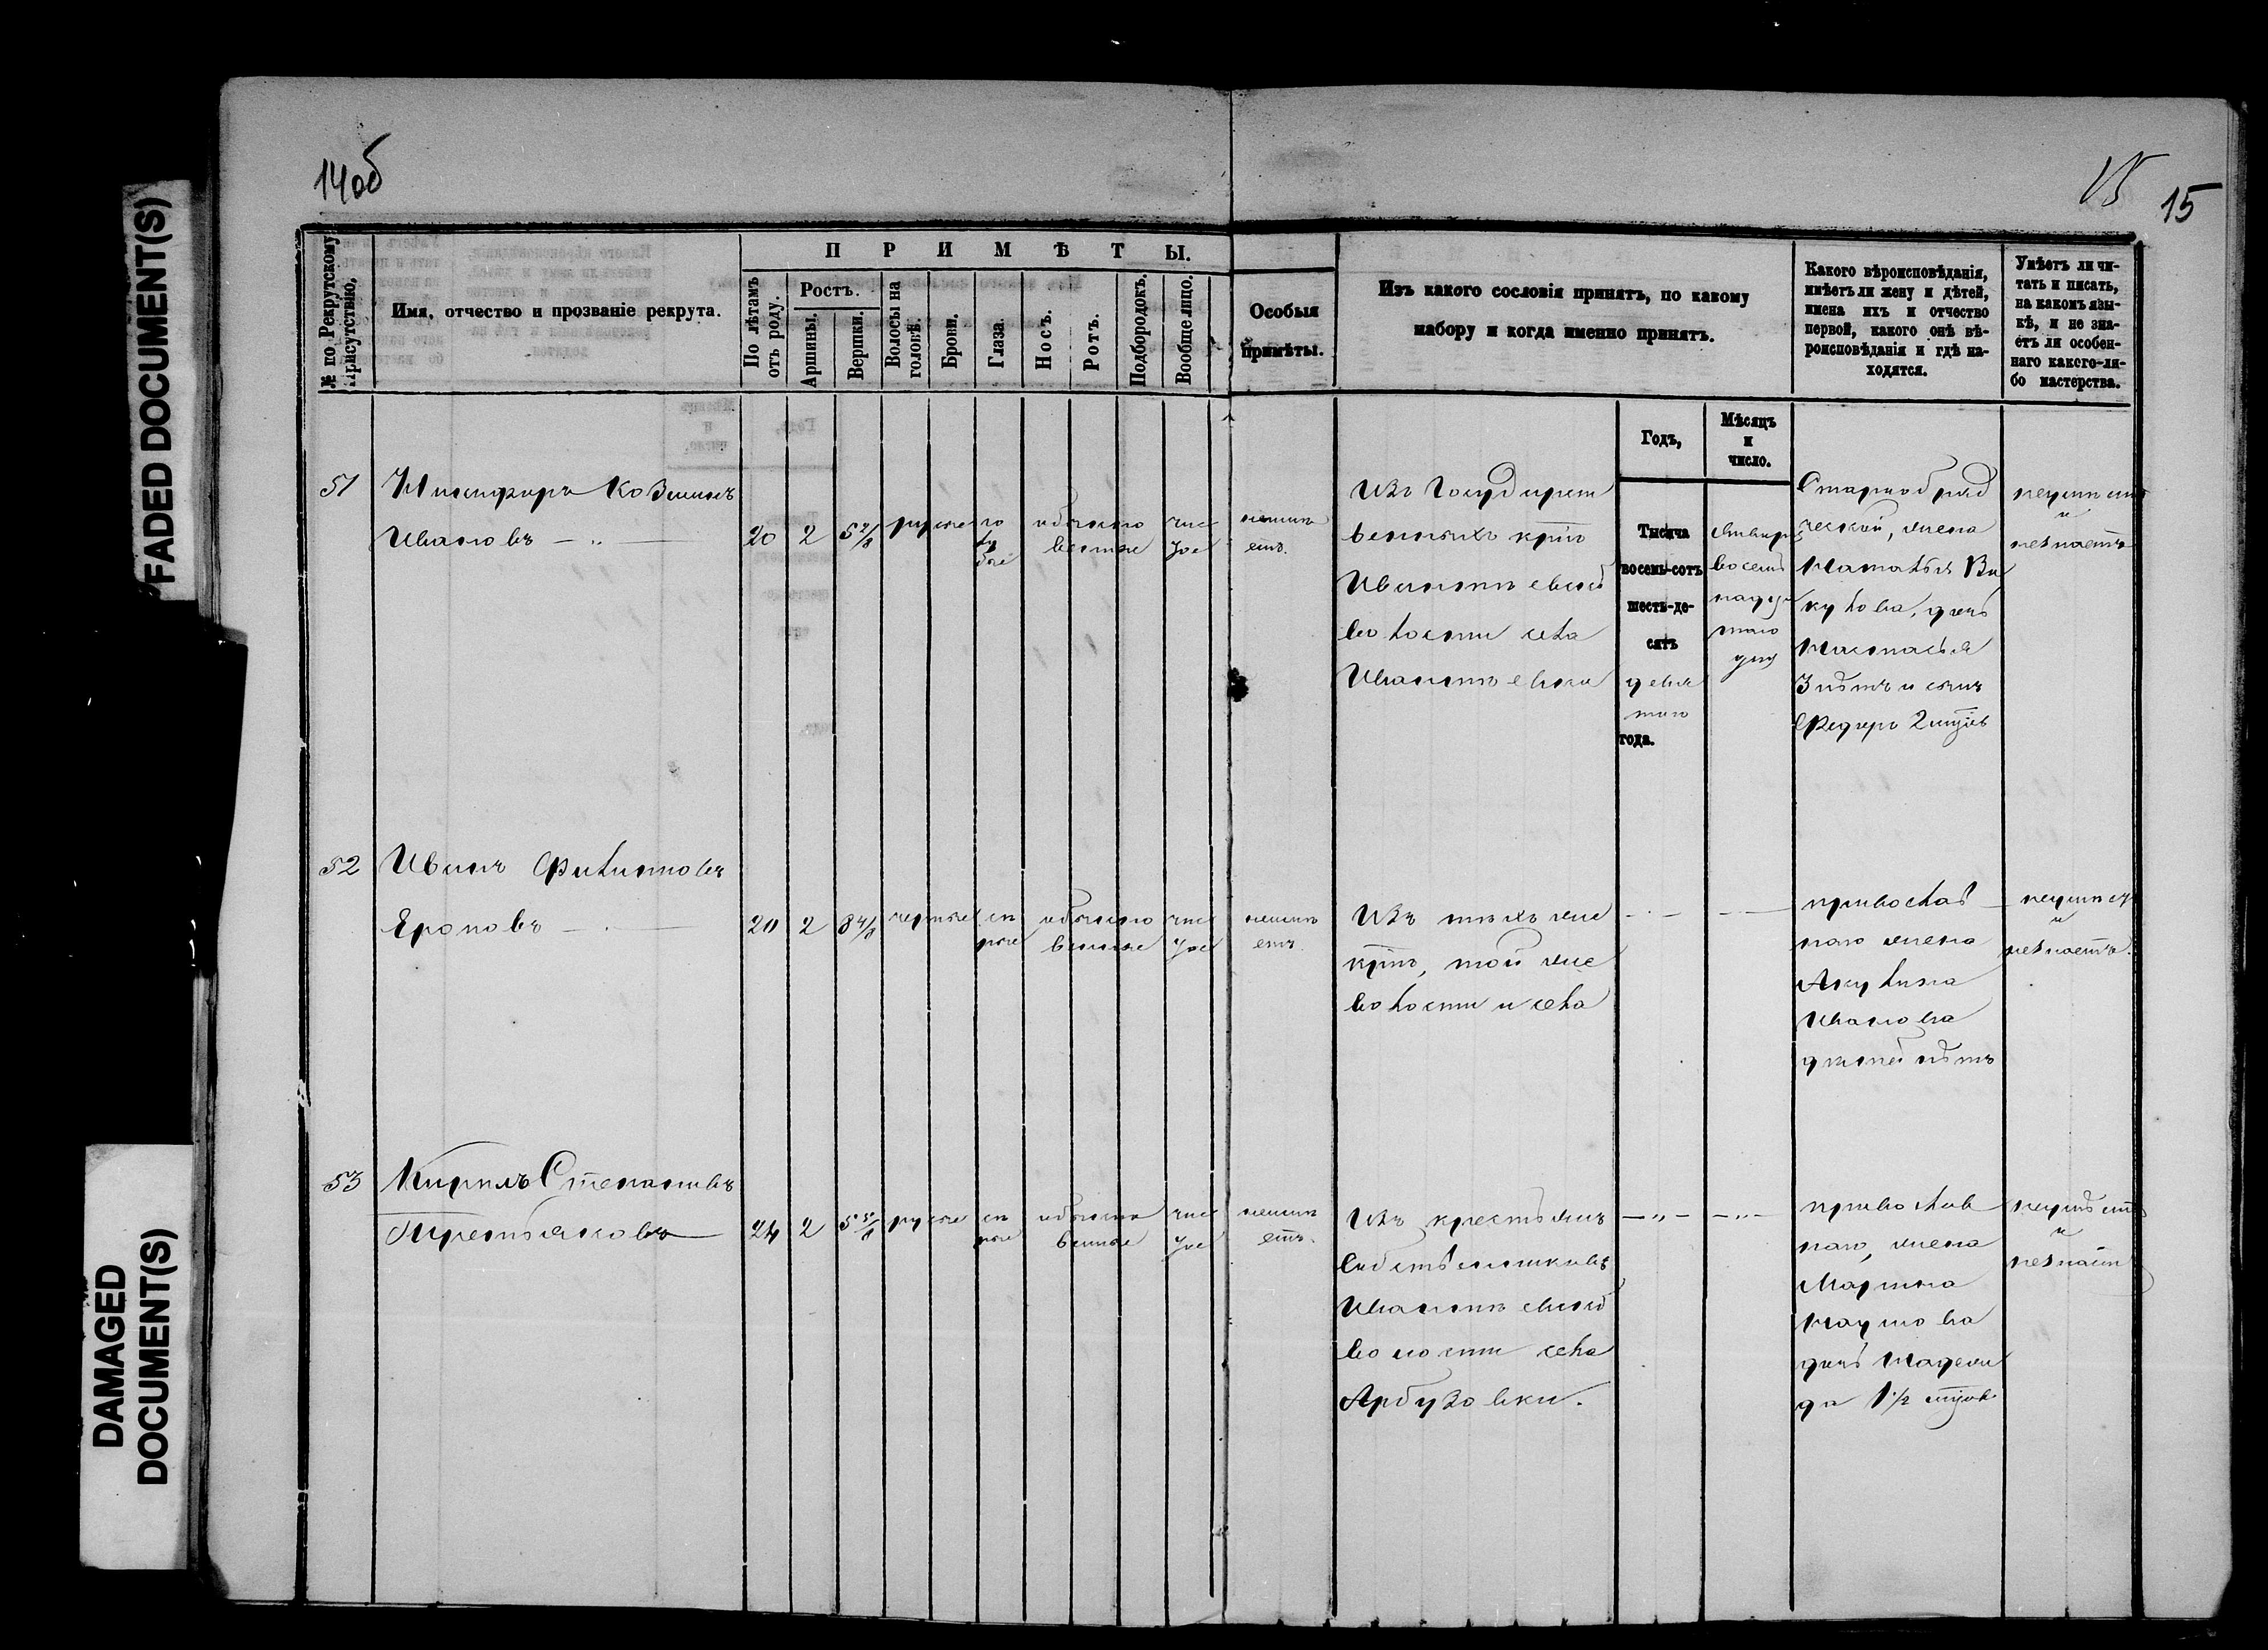 FADED DOCUMENT(S)
DAMAGED
DOCUMENT(S)
14об
15
15
№ по Рекрутскому Присутствію.
Имя, отчество и прозваніе рекрута.
ПРИМѢТЫ.
По лѣтамъ отъ роду.
Ростъ.
Аршины.
Вершки.
Волосы на головѣ.
Брови.
Глаза.
Носъ.
Ротъ.
Подбородокъ.
Вообще лицо.
Особыя
примѣты.
Изъ какого сословія принятъ, по какому
набору и когда именно принятъ.
Годъ,
Мѣсяцъ
и
число.
Какого вѣроисповѣданія,
имѣетъ ли жену и дѣтей,
имена ихъ и отчество
первой, какого онѣ вѣ-
роисповѣданія и гдѣ на-
ходятся.
Умѣетъ ли чи-
тать и писать,
на какомъ язы-
кѣ, и не зна-
етъ ли особен-
наго какого-ли-
бо мастерства.
51
Никифоръ Козминъ
Ивановъ
20
2
5
русые
го
лу
бые
обыкно
венные
чис
тое
неимѣ
етъ.
Изъ Государст
венныхъ крт҃нъ
Ивантѣевской
волости села
Ивантѣевки
Тысяча
восемь-сотъ
шесть-де-
сятъ
девя
таго
года.
Января
восем
надца
таго
дня
Старообряд
ческой, жена
Наталья Ви
кулова, дочь
Настасья
3 лѣтъ и сынъ
Федоръ 2 мцовъ
неумѣетъ
и
незнаетъ
52
Иванъ Филиповъ
Ероповъ
20
2
8 4/8
черные
сѣ
рые
обыкно
венные
чис
тое
неимѣ
етъ.
Изъ тѣхъ же
крт҃нъ, той же
волости и села
православ
наго жена
Акулина
Иванова
дѣтей нѣтъ
неумѣет
и
незнаетъ.
53
Кирилъ Степановъ
Третьяковъ
24
2
5
русые
сѣ
рые
обыкно
венные
чис
тое
неимѣ
етъ.
Изъ крестьянъ
Собственниковъ
Ивантѣевской
волости села
Арбузовки.
православ
наго, жена
Марина
Наумова
дочь Надежи
да 1 1/2 мцовъ
неумѣетъ
и
незнаетъ